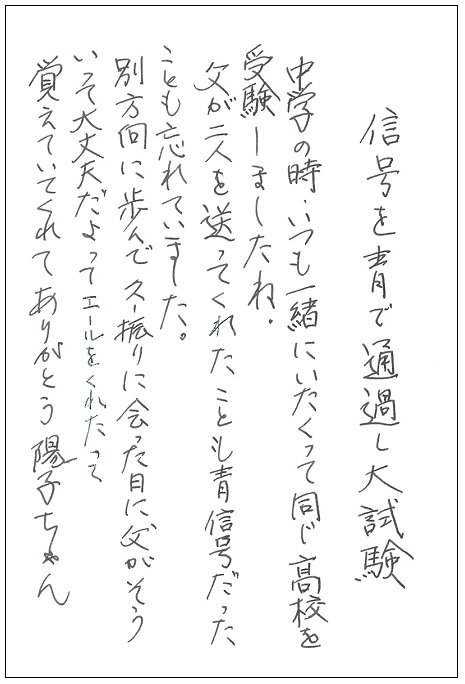 信号を青で通過し大試験
中学の時、いつも一緒にいたくって同じ高校を
受験しましたね。
父が二人を送ってくれたことも青信号だった
ことも忘れていました。
別方向に歩んで久し振りに会った日に父がそう
いって大丈夫だよってエールをくれたって
覚えていてくれてありがとう陽子ちゃん